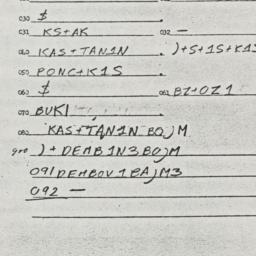 030 $
031 KS+AK 032 —
040 KAS+TAN1N )+S+1S+KAS
050 PONC+K1S
060 $ 061 BZ+OZ1
070 BUKI
080 KAS+TAN1N BO)M
090 )+DEMB1N3BO)M
091 DEMBOV1BA)M3
092 —